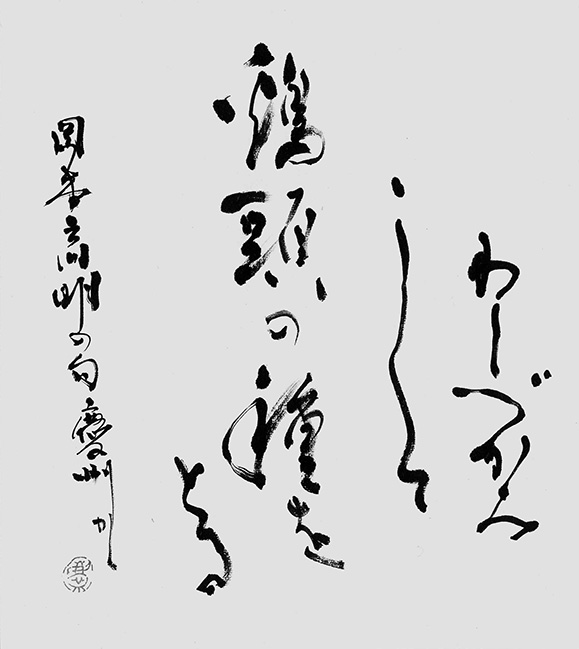 わしづかみ
して
鶏頭の種を
とる
岡本高明の句 慶州かく